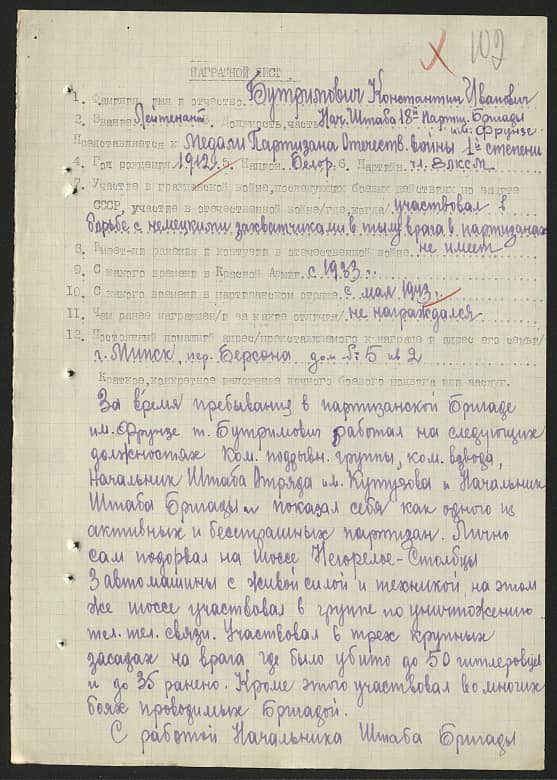 102
НАГРАДНОЙ ЛИСТ
1. Фамилия, имя и отчество. Бутримович Константин Иванович
2. Звание Лейтенант 3. Должность, часть Нач. Штаба 18й Парти. Бригады
им. Фрунзе
Представляется к Медали Партизана Отечеств. войны 1й степени
4. Год рождения 1912 г. 5. Национ. Белор. 6. Партийн. чл. ВЛКСМ
7. Участие в гражданской войне, последующих боевых действиях по защите
СССР, участие в отечественной войне/где, когда/ участвовал в
борьбе с немецкими захватчиками в тылу врага в партизанах
8. Имеет-ли ранения и контузии в отечественной войне. не имеет
9. С какого времени в Красной Армии. с 1933 г.
10. С какого времени в партизанском отряде. с мая 1943 г.
11. Чем ранее награжден/и за какие отличия/. не награждался
12. Постоянный домашний адрес/представляемого к награде и адрес его семьи/
г. Минск, пер. Берсона, дом № 5 кв 2
Краткое, конкретное изложение личного боевого подвига или заслуг.
За время пребывания в партизанской Бригаде
им. Фрунзе т. Бутримович работал на следующих
должностях Ком. подрывн. группы, ком. взвода,
Начальник Штаба Отряда им. Кутузова и Начальник
Штаба Бригады и показал себя как одного из
активных и бесстрашных партизан. Лично
сам подорвал на шоссе Негорелое-Столбцы
3 автомашины с живой силой и техникой, на этом
же шоссе участвовал в группе по уничтожению
тел. тел. связи. Участвовал в трех крупных
засадах на врага где было убито до 50 гитлеровцев
и до 35 ранено. Кроме этого участвовал во многих
боях проводимых Бригадой.
С работой Начальника Штаба Бригады